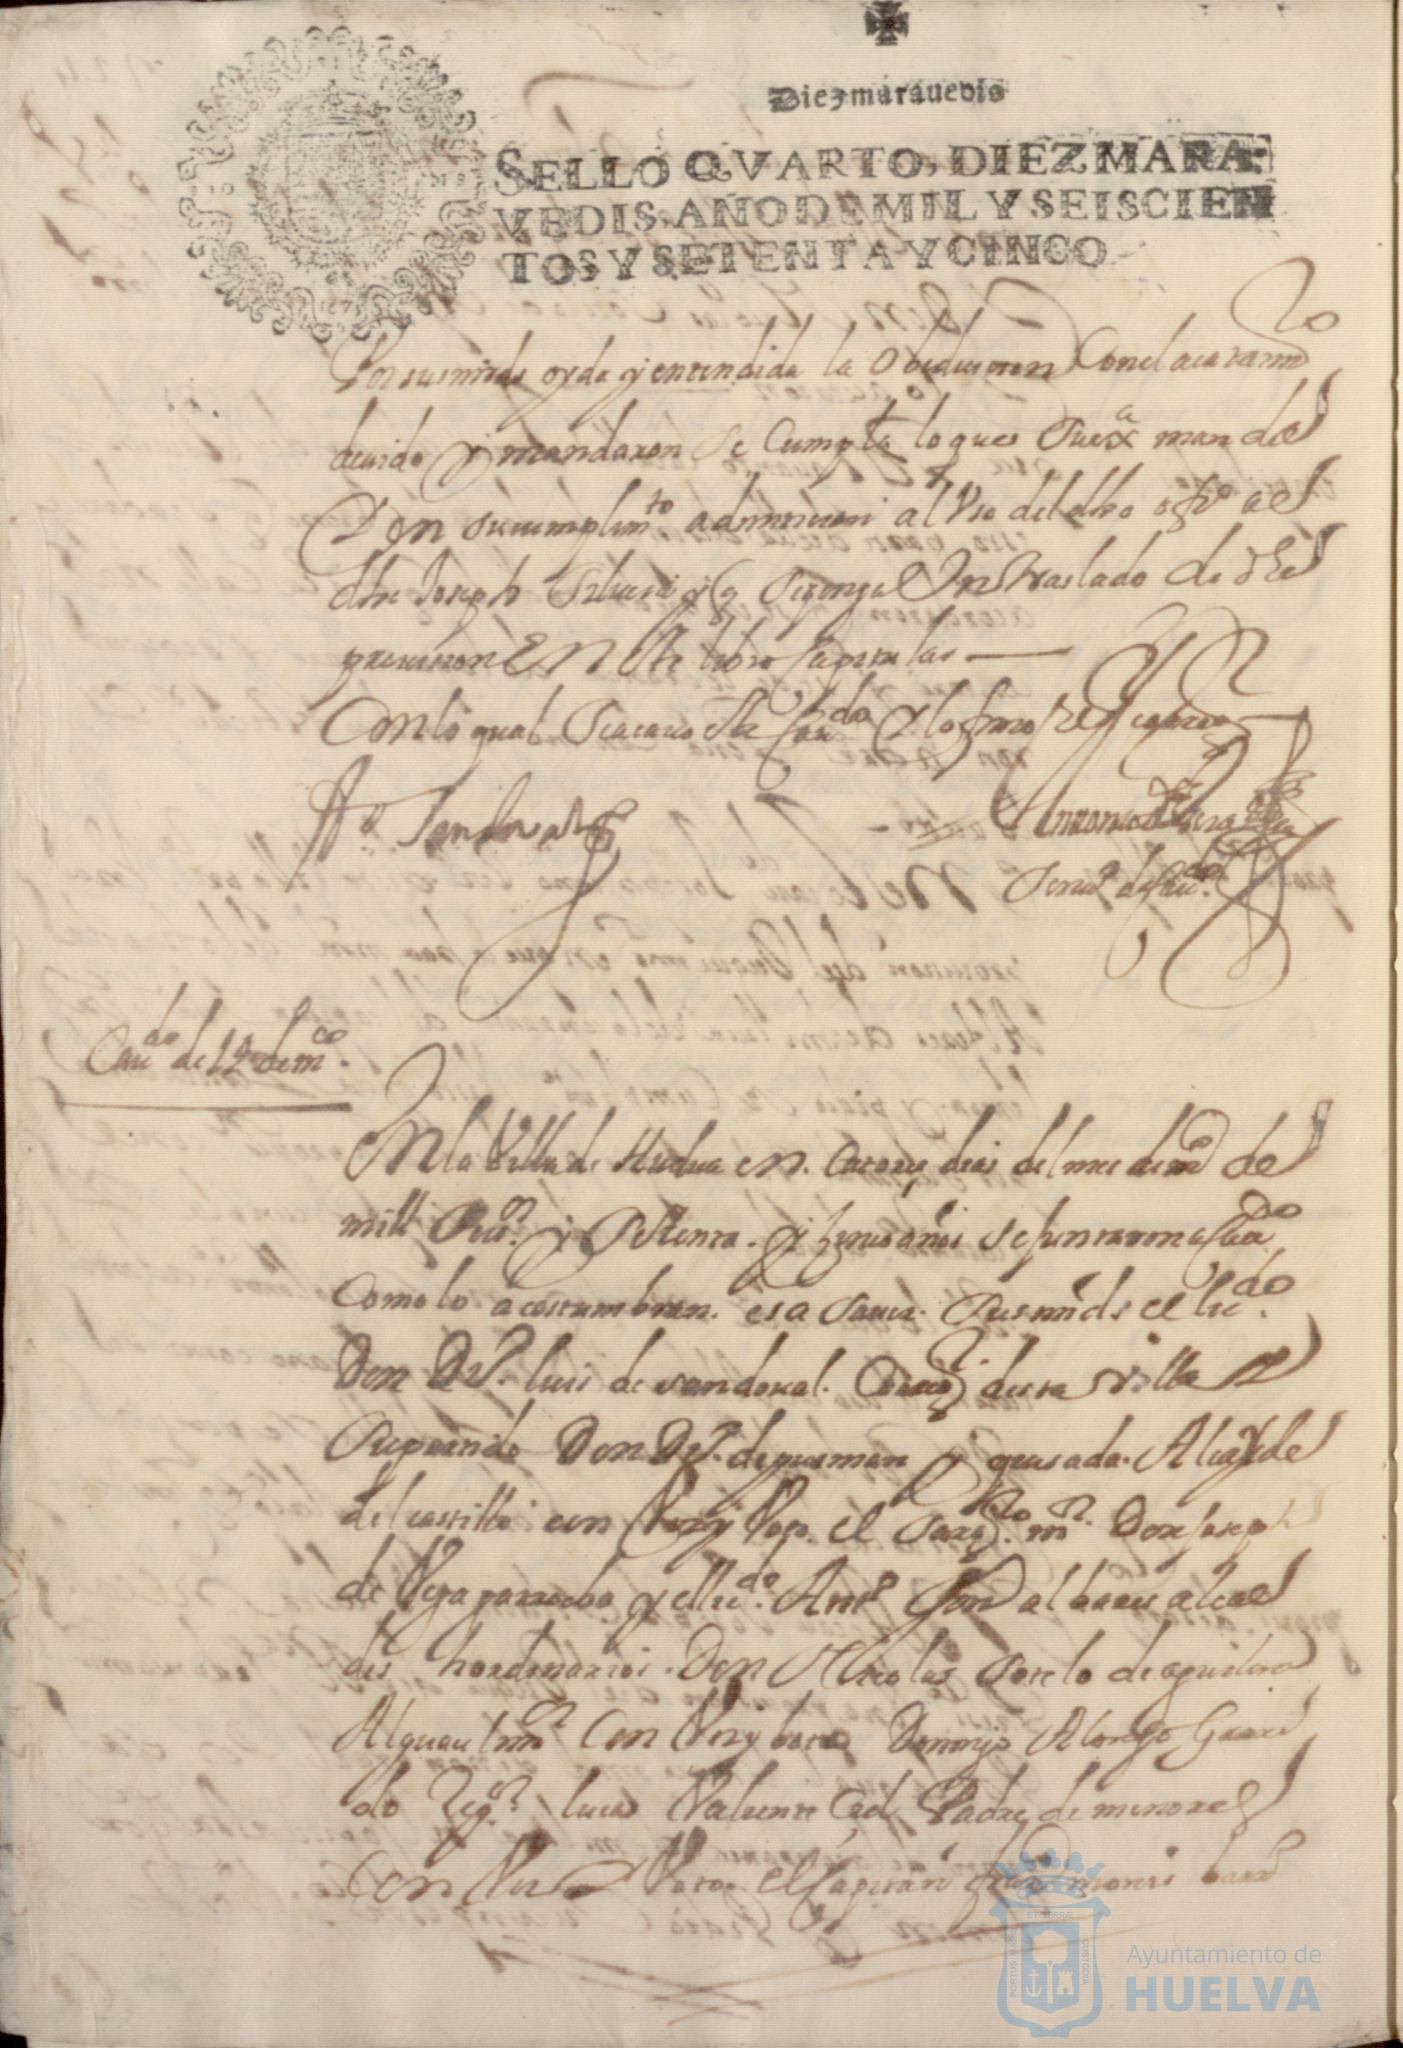 Diez marauedis
SELLO QVARTO, DIEZ MARA-
VEDIS, AÑO DE MIL Y SEISCIEN
TOS Y SETENTA Y CINCO
Por sus mrds oyda y entendida la obedecieron Con el acatamto
deuido y mandaron se Cumpla lo que su exa manda
Y en su cumplimto admitieron al Vso del dho ofo al
dho Joseph y q se ponga Vn traslado de dha
prouision En este libro Capitular
Con lo qual se acauo este Caudo y lo firmo
Sandoual
Antonio
de Cauo
Caudo de 12 de mço
En la Villa de Huelua en Catorze dias del mes de mço de
mill seisos y setenta y zinco años se juntaron a Cauo
Como lo acostumbran es a sauer sus mrds el licdo
Don Do luis de sandoual Corregor desta villa
Don Do de gusman y quesada Alcayde
del castillo con Voz y Voto el sargto mor Don Joseph
de Vega garrocho y el licdo Anto Gon albares alcal
des hordinarios Don Nicolas sotelo de aguilera
Alguasil mor Con Voz y boto Domingo Alonso Garri
do Regor lucas Valiente Padre de menores
Con Voz y Voto el Capitan
PORTUS MARIS
ET TERRÆ
CUSTODIA
Ayuntamiento de
HUELVA